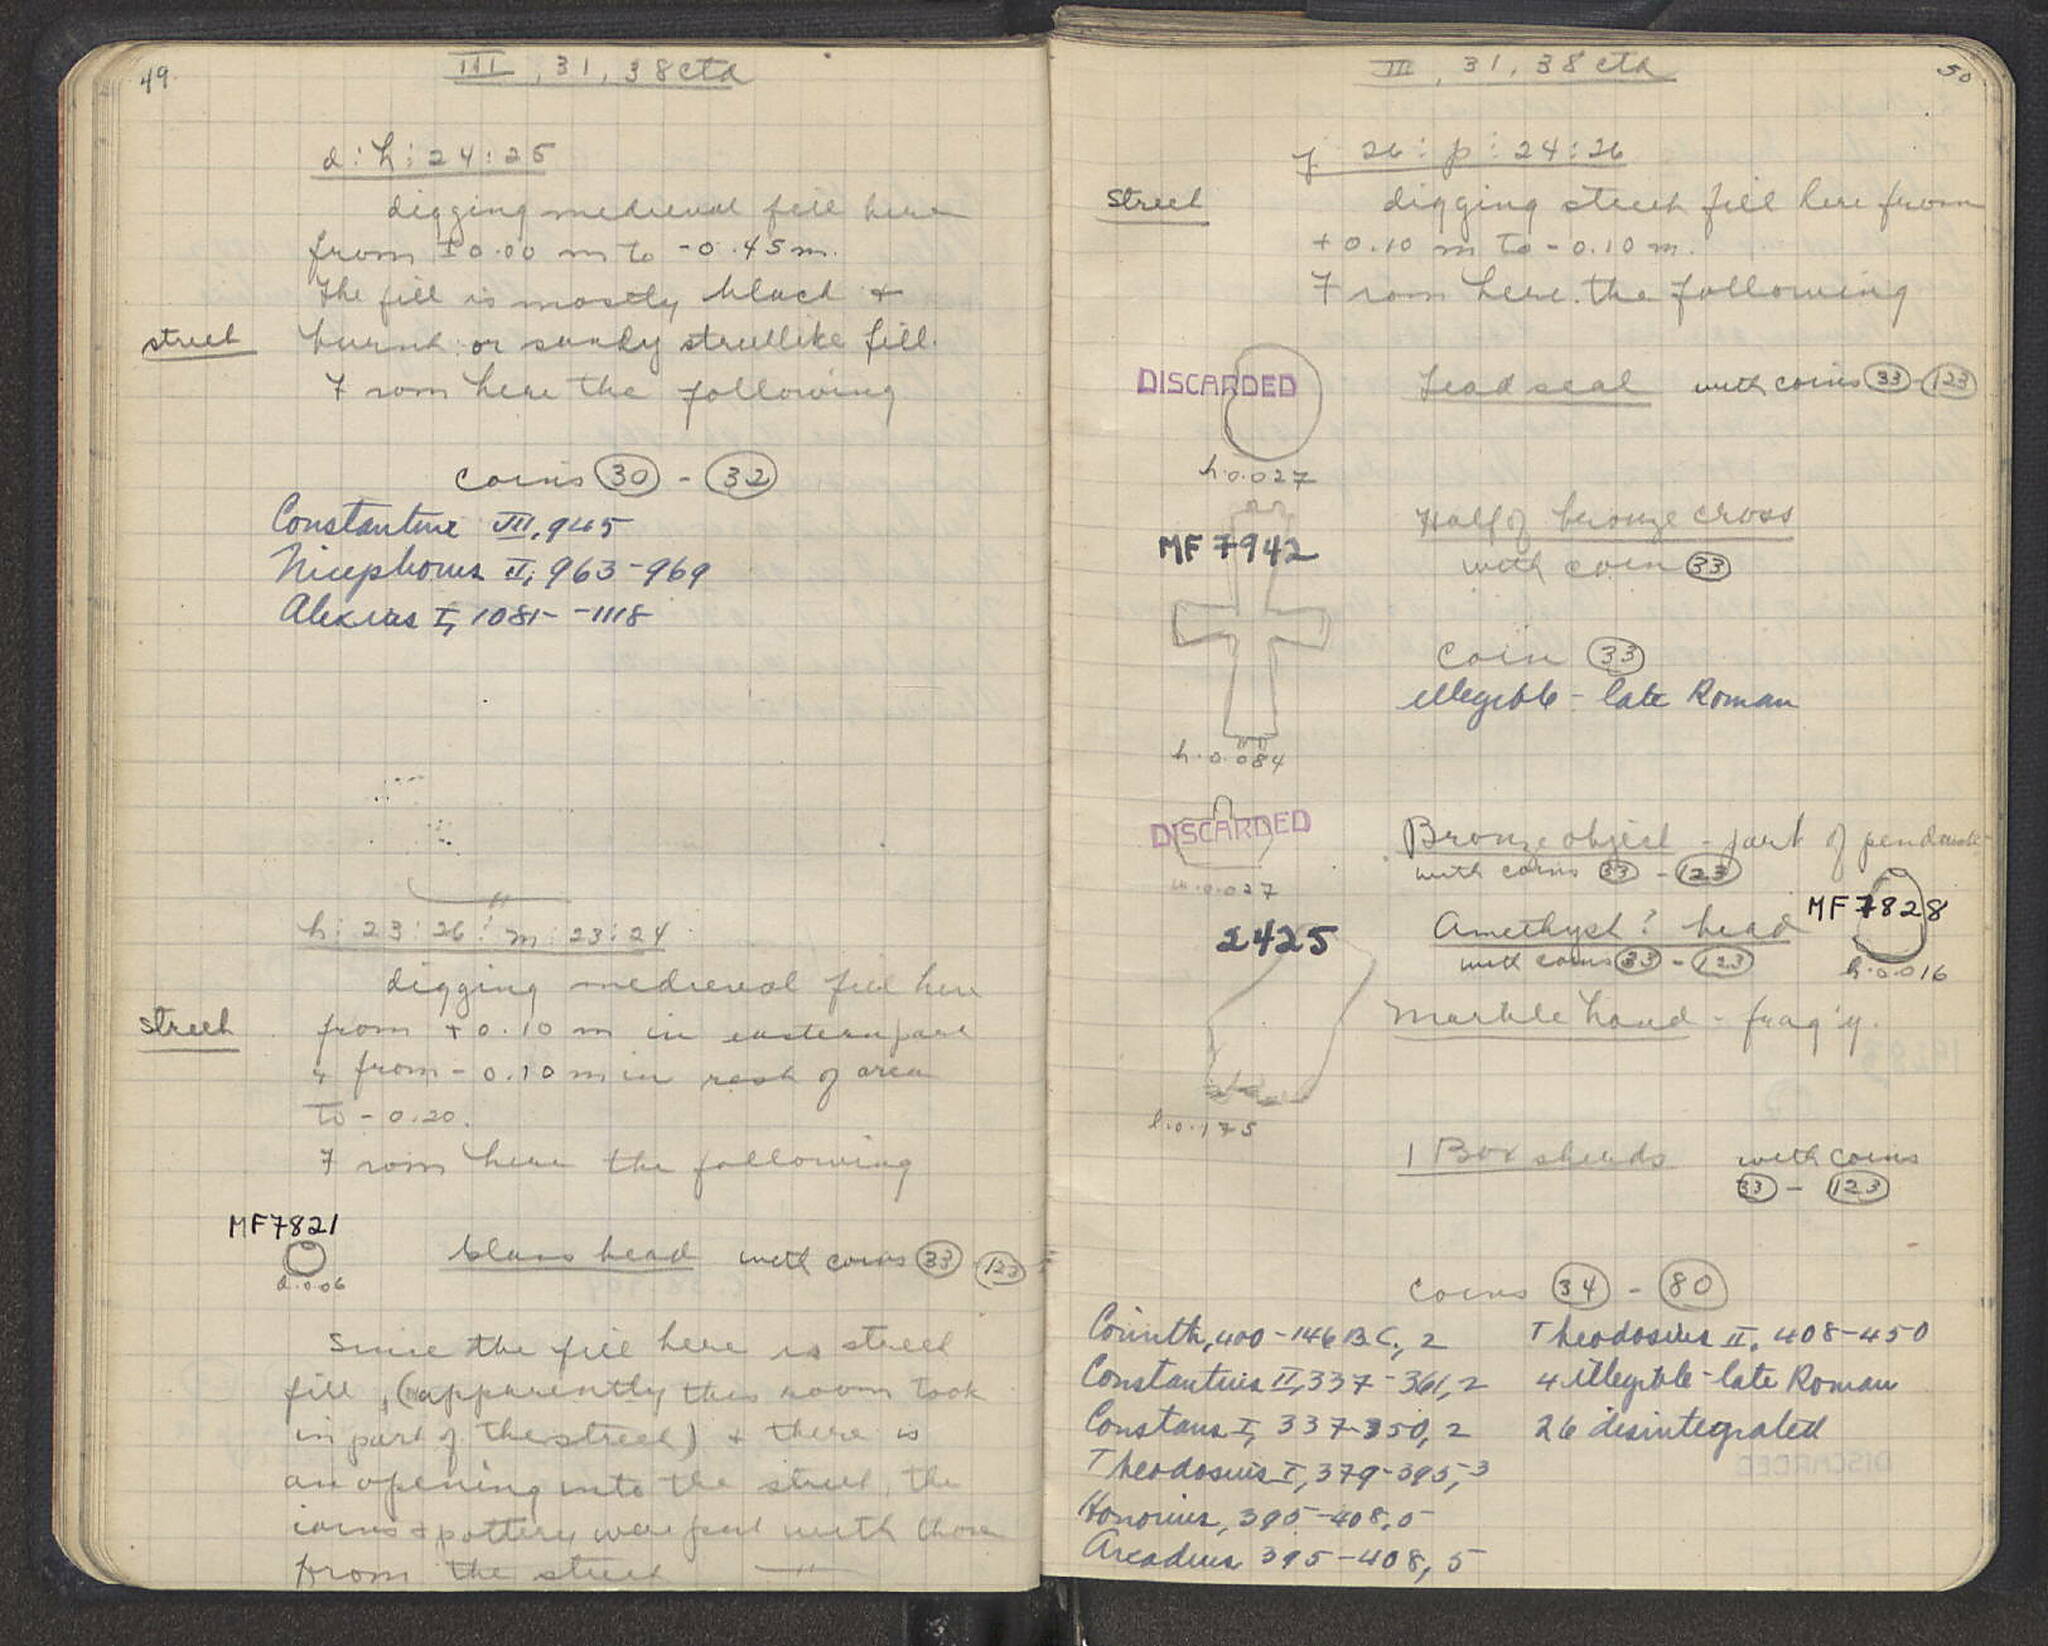 49
III, 31, 38 ctd
d:h:24:25
digging medieval fill here
from ±0.00 m to -0.45 m.
The fill is mostly black +
street
burnt or sandy streetlike fill.
From here the following
coins 30 - 32
Constantine VII, 945
Nicephorus II, 963-969
Alexius I, 1081-1118
h:23:26:m:23:24
digging medieval fill here
street
from +0.10 m in eastern part
+ from -0.10 m in rest of area
to -0.20.
From here the following
MF7821
d.0.06
Glass bead with coins 33 - 123
Since the fill here is street
fill, (apparently this room took
in part of the street) + there is
an opening into the street, the
coins + pottery were put with those
from the street
50
III, 31, 38 ctd
j 26:p:24:26
street
digging street fill here from
+0.10 m to -0.10 m.
From here the following
DISCARDED
Lead seal with coins 33-123
h.0.027
Half of bronze cross
MF 7942
with coin 33
coin 33
illegible - late Roman
h.0.084
DISCARDED
Bronze object - part of pendant
with coins 33 - 123
0.027
MF 7828
2425
Amethyst? bead
with coins 33 - 123
h.0.016
Marble hand - frag'y.
l.0.175
1 Box sherds with coins
33 - 123
coins 34 - 80
Corinth, 400-146 B.C., 2
Constantius II, 337-361, 2
Constans I, 337-350, 2
Theodosius I, 379-395, 3
Honorius, 395-408, 5
Arcadius 395-408, 5
Theodosius II, 408-450
4 illegible - late Roman
26 disintegrated